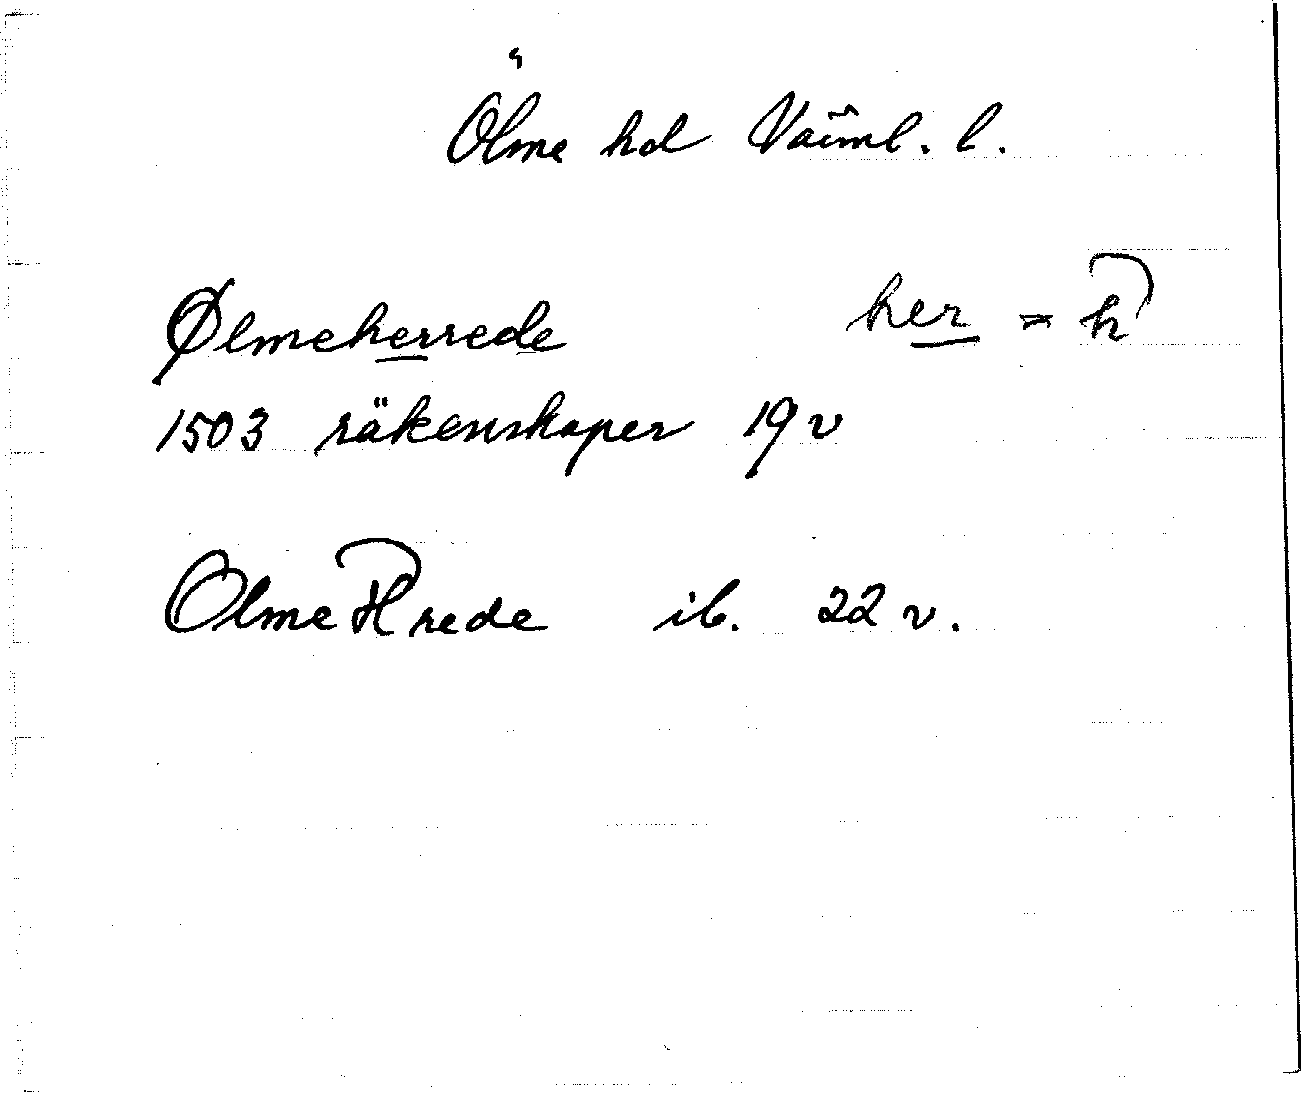 Ölme hd Värml. l.
Ølmeherrede her = h
1503 räkenskaper 19 v
Olme Hrede ib. 22 v.